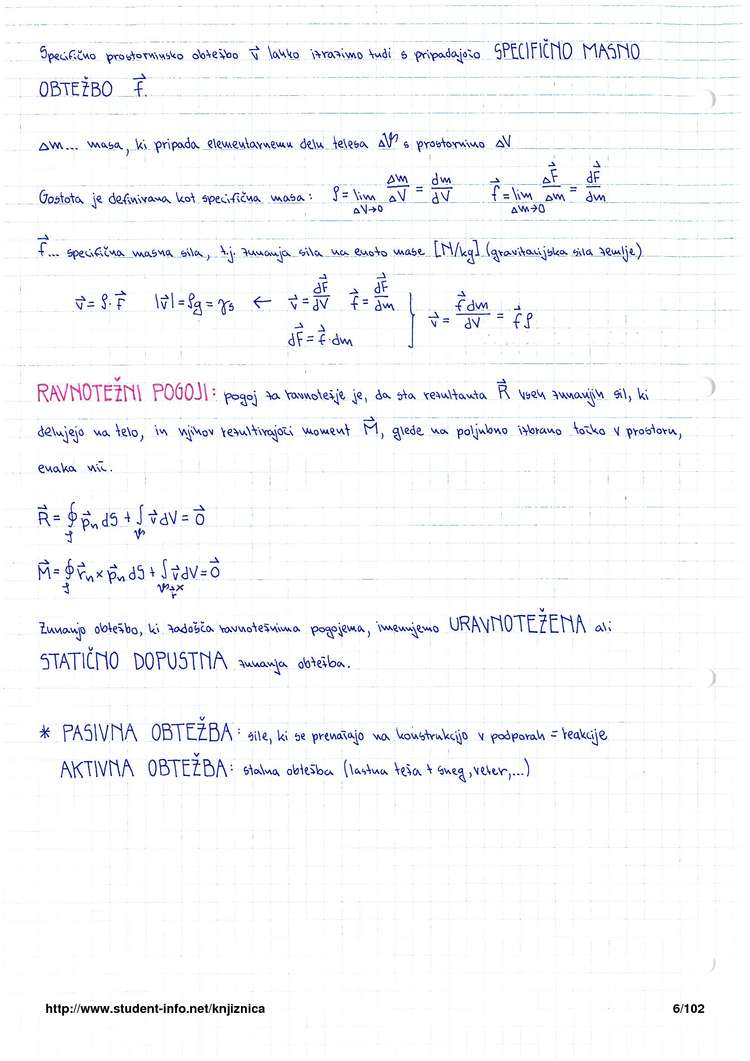 Specifično prostorninsko obtežbo v⃗ lahko izrazimo tudi s pripadajočo SPECIFIČNO MASNO
OBTEŽBO f⃗.
Δm... masa, ki pripada elementarnemu delu telesa Δ𝒱 s prostornino ΔV
Gostota je definirana kot specifična masa: ρ = lim_{ΔV→0} Δm/ΔV = dm/dV f⃗ = lim_{Δm→0} ΔF⃗/Δm = dF⃗/dm
f⃗... specifična masna sila, t.j. zunanja sila na enoto mase [N/kg] (gravitacijska sila zemlje)
v⃗ = ρ·f⃗ |v⃗| = ρg = γs ← v⃗ = dF⃗/dV f⃗ = dF⃗/dm } v⃗ = f⃗dm/dV = f⃗ρ
dF⃗ = f⃗·dm
RAVNOTEŽNI POGOJI: pogoj za ravnotežje je, da sta rezultanta R⃗ vseh zunanjih sil, ki
delujejo na telo, in njihov rezultirajoči moment M⃗, glede na poljubno izbrano točko v prostoru,
enaka nič.
R⃗ = ∮_𝒮 p⃗n dS + ∫_𝒱 v⃗ dV = 0⃗
M⃗ = ∮_𝒮 r⃗n × p⃗n dS + ∫_𝒱 r⃗ × v⃗ dV = 0⃗
Zunanjo obtežbo, ki zadošča ravnotežnima pogojema, imenujemo URAVNOTEŽENA ali
STATIČNO DOPUSTNA zunanja obtežba.
* PASIVNA OBTEŽBA: sile, ki se prenašajo na konstrukcijo v podporah = reakcije
AKTIVNA OBTEŽBA: stalna obtežba (lastna teža + sneg, veter,...)
http://www.student-info.net/knjiznica 6/102